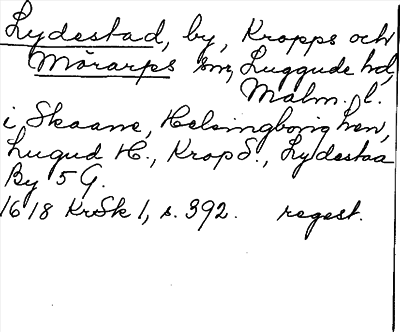 Lydestad, by, Kropps och
Mörarps snr, Luggude hd,
Malm. l.
i Skaane, Helsingborig hen,
Lugud H., Krop S., Lydestaa
By 5 G.
1618 KrSk 1, s. 392. regest.